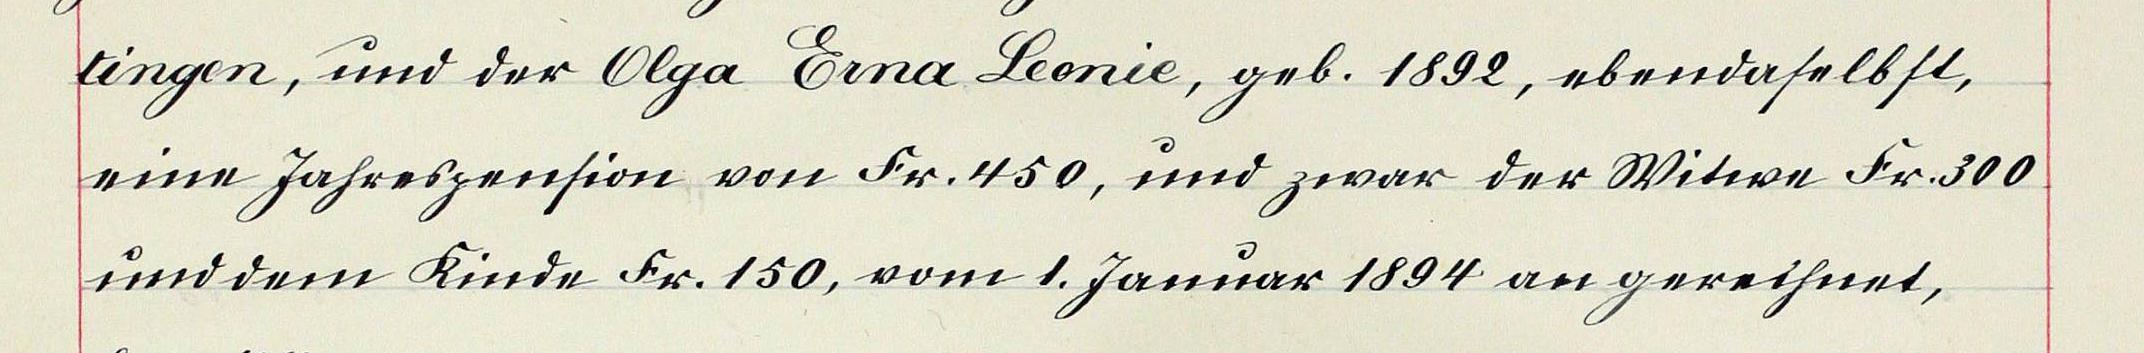 tingen, und der Olga Erna Leonie, geb. 1892, ebendaselbst,
eine Jahrespension von Fr. 450, und zwar der Witwe Fr. 300
und dem Kinde Fr. 150, vom 1. Januar 1894 an gerechnet,